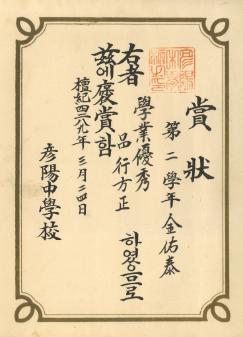 賞狀
第二學年 金佑泰
右者 學業優秀 品行方正 하였으므로
玆에 褒賞함
檀紀四二八九年 三月二四日
彦陽中學校